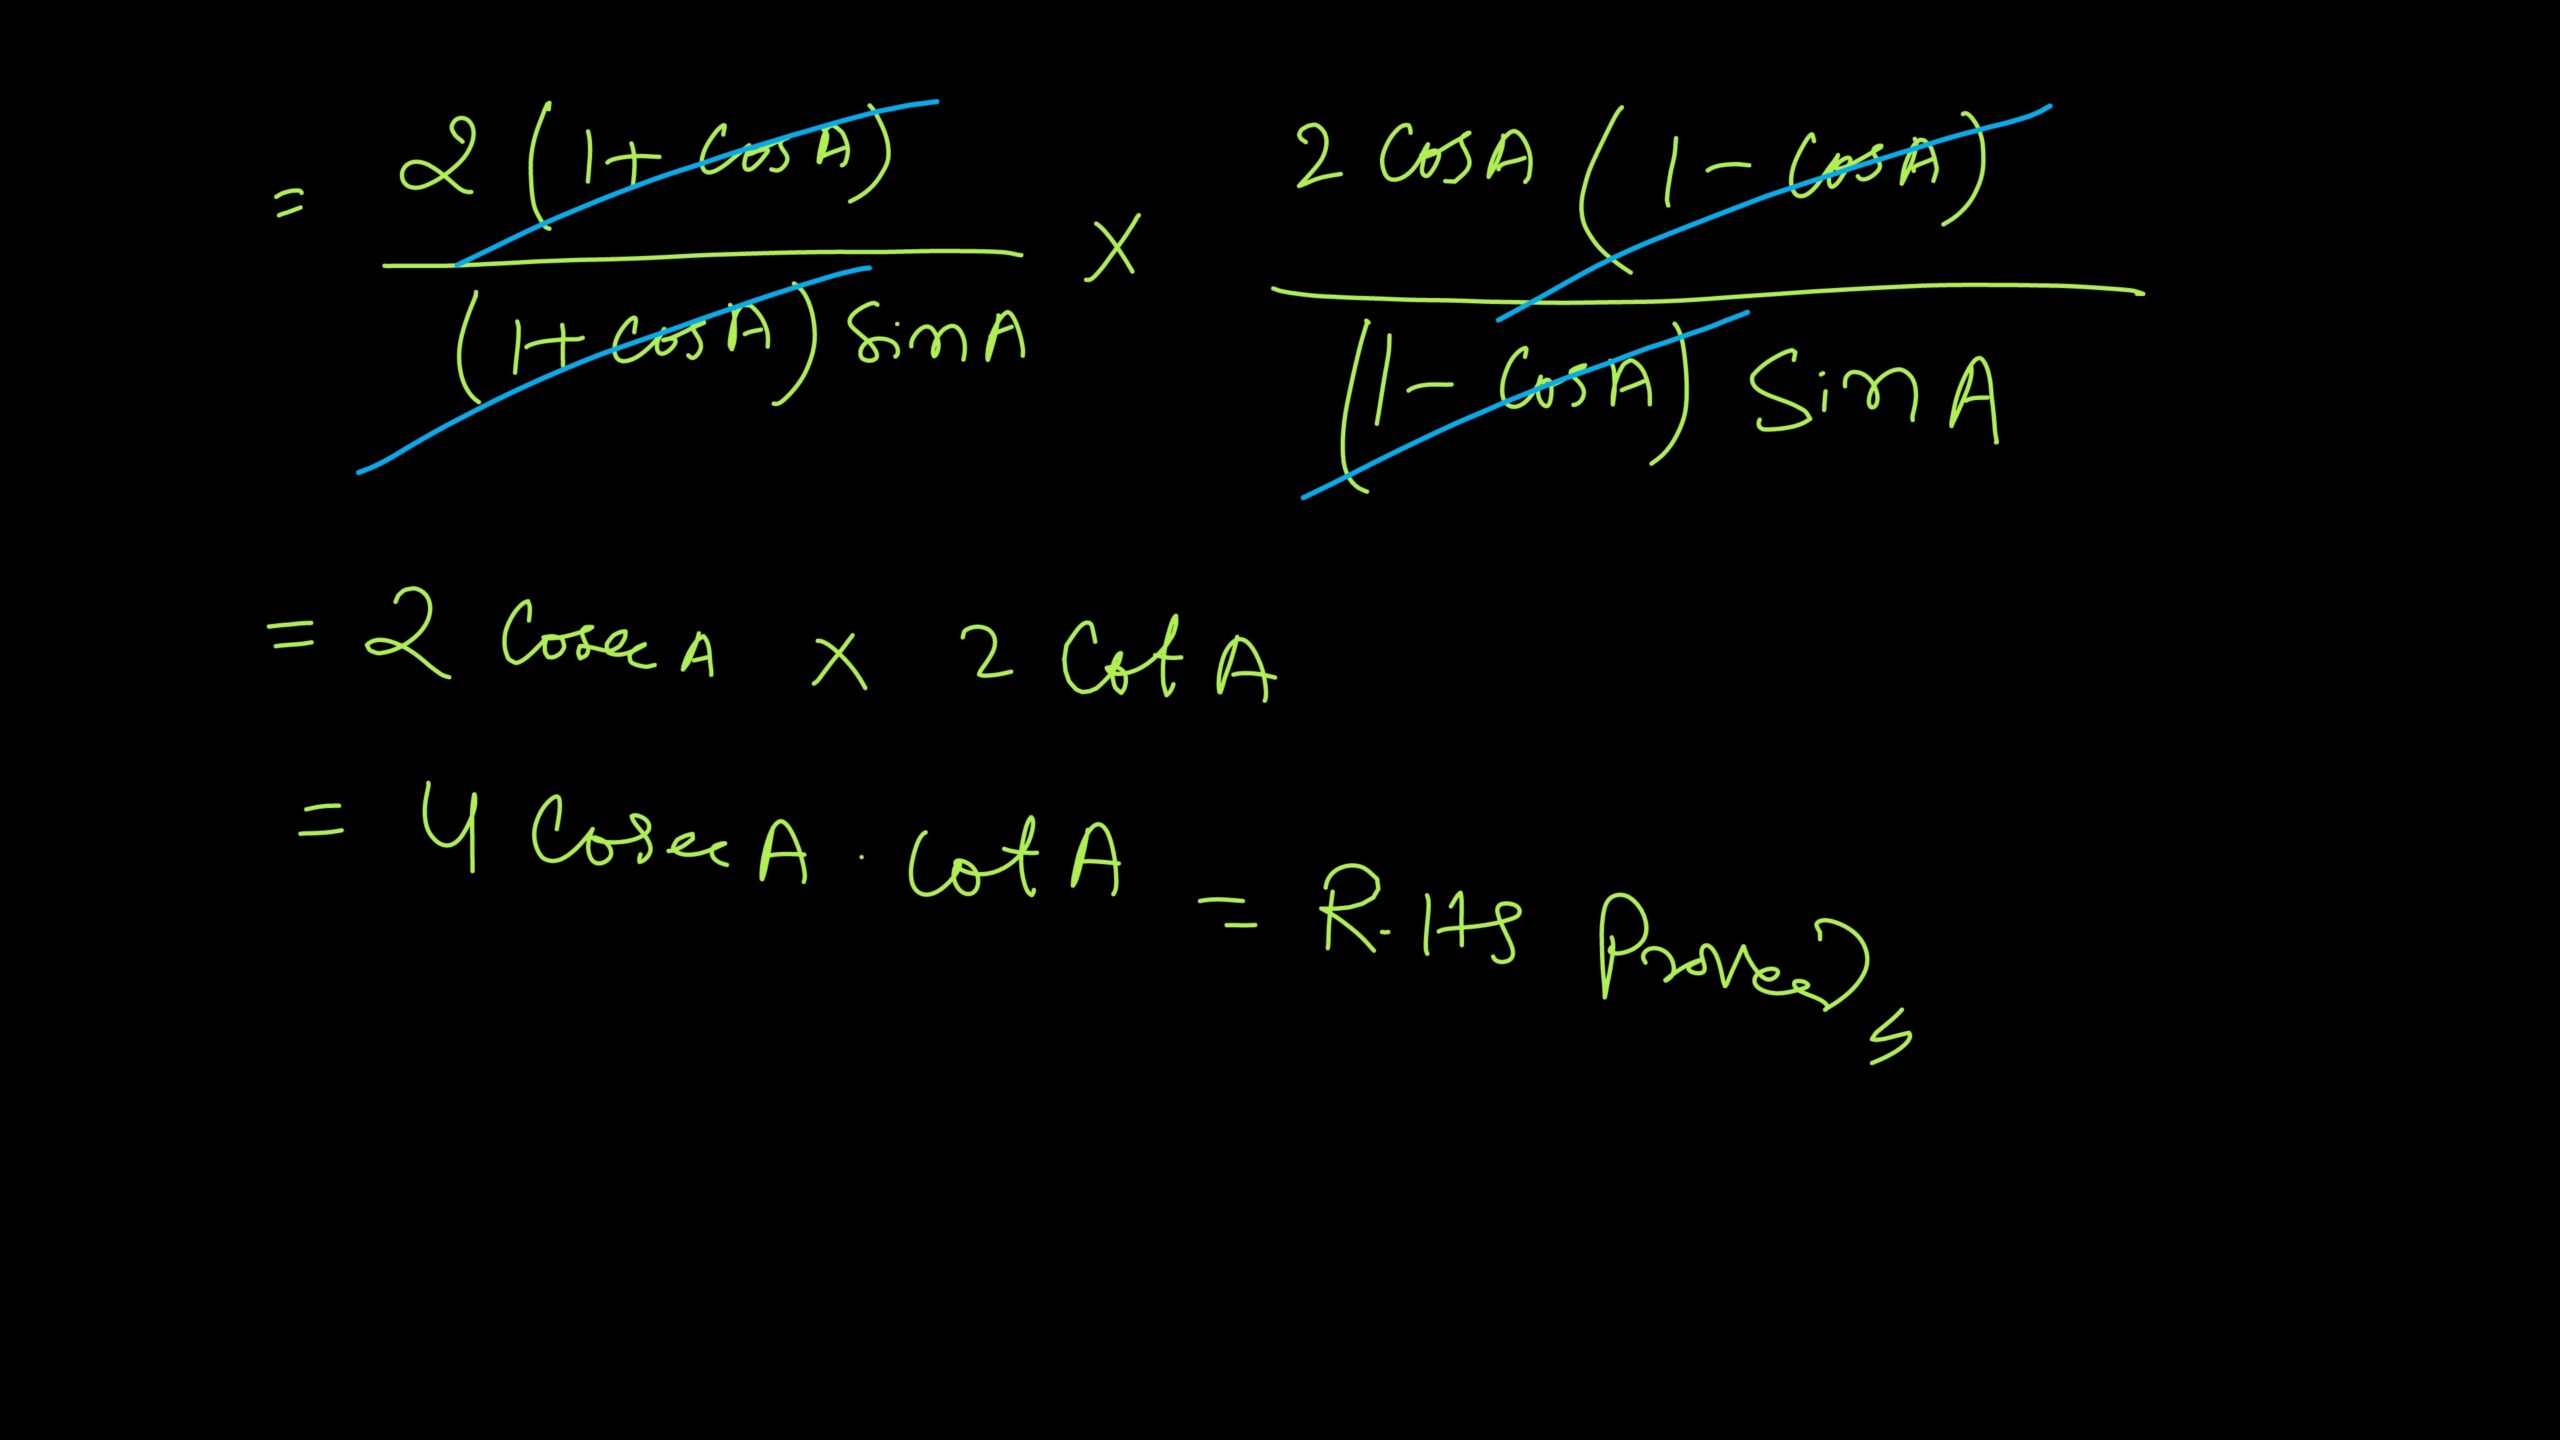 = 2 (1 + Cos A) / (1 + Cos A) Sin A × 2 Cos A (1 - Cos A) / (1 - Cos A) Sin A
= 2 Cosec A × 2 Cot A
= 4 Cosec A . Cot A = R.HS Proved